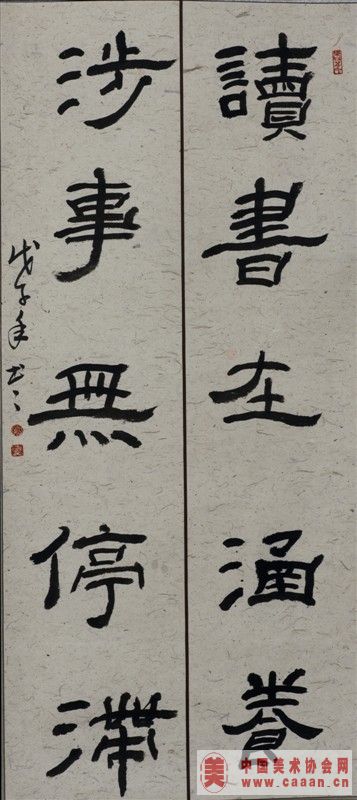 讀書在涵養
涉事無停滯
戊子年
美
中国美术协会网
www.caaan.cn